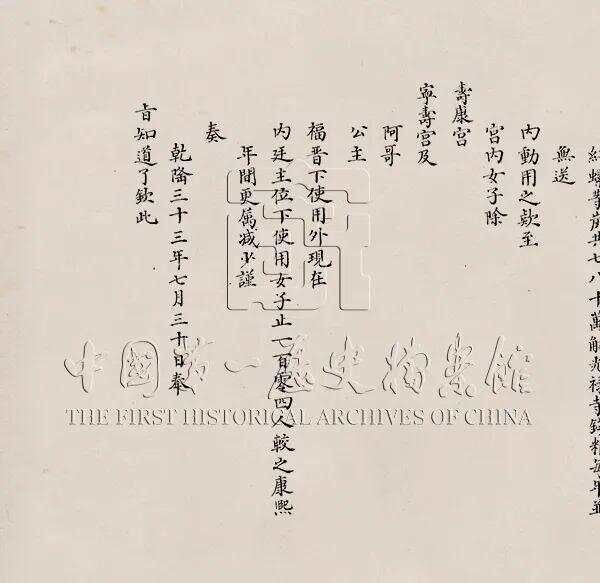 炭共七八十萬觔光祿寺錢粮每年並
無送
內動用之款至
宮內女子除
壽康宮
寧壽宮及
阿哥
公主
福晉下使用外現在
內廷主位下使用女子止一百零四人較之康熙
年間更屬減少謹
奏
乾隆三十三年七月三十日奉
旨知道了欽此
中國第一歷史檔案館
THE FIRST HISTORICAL ARCHIVES OF CHINA